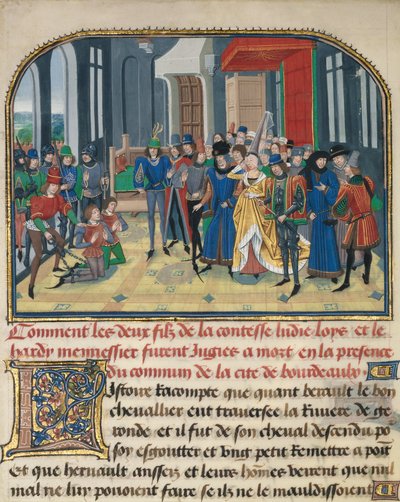 Comment les deux filz de la contesse ludie loys et le
hardy mennessier furent Jugies a mort en la presence
du commun de la cite de bourdeaulx
LIstoire Racompte que quant berault le bon
chevallier eut traversee la Riviere de ge
ronde et il fut de son cheval descendu po
soy esgoutter et ung petit Remettre a poīt
Et que hernault ansseis et leurs hōmes veirent que nul
mal ne luy pouoient faire se ilz ne le mauldissoient